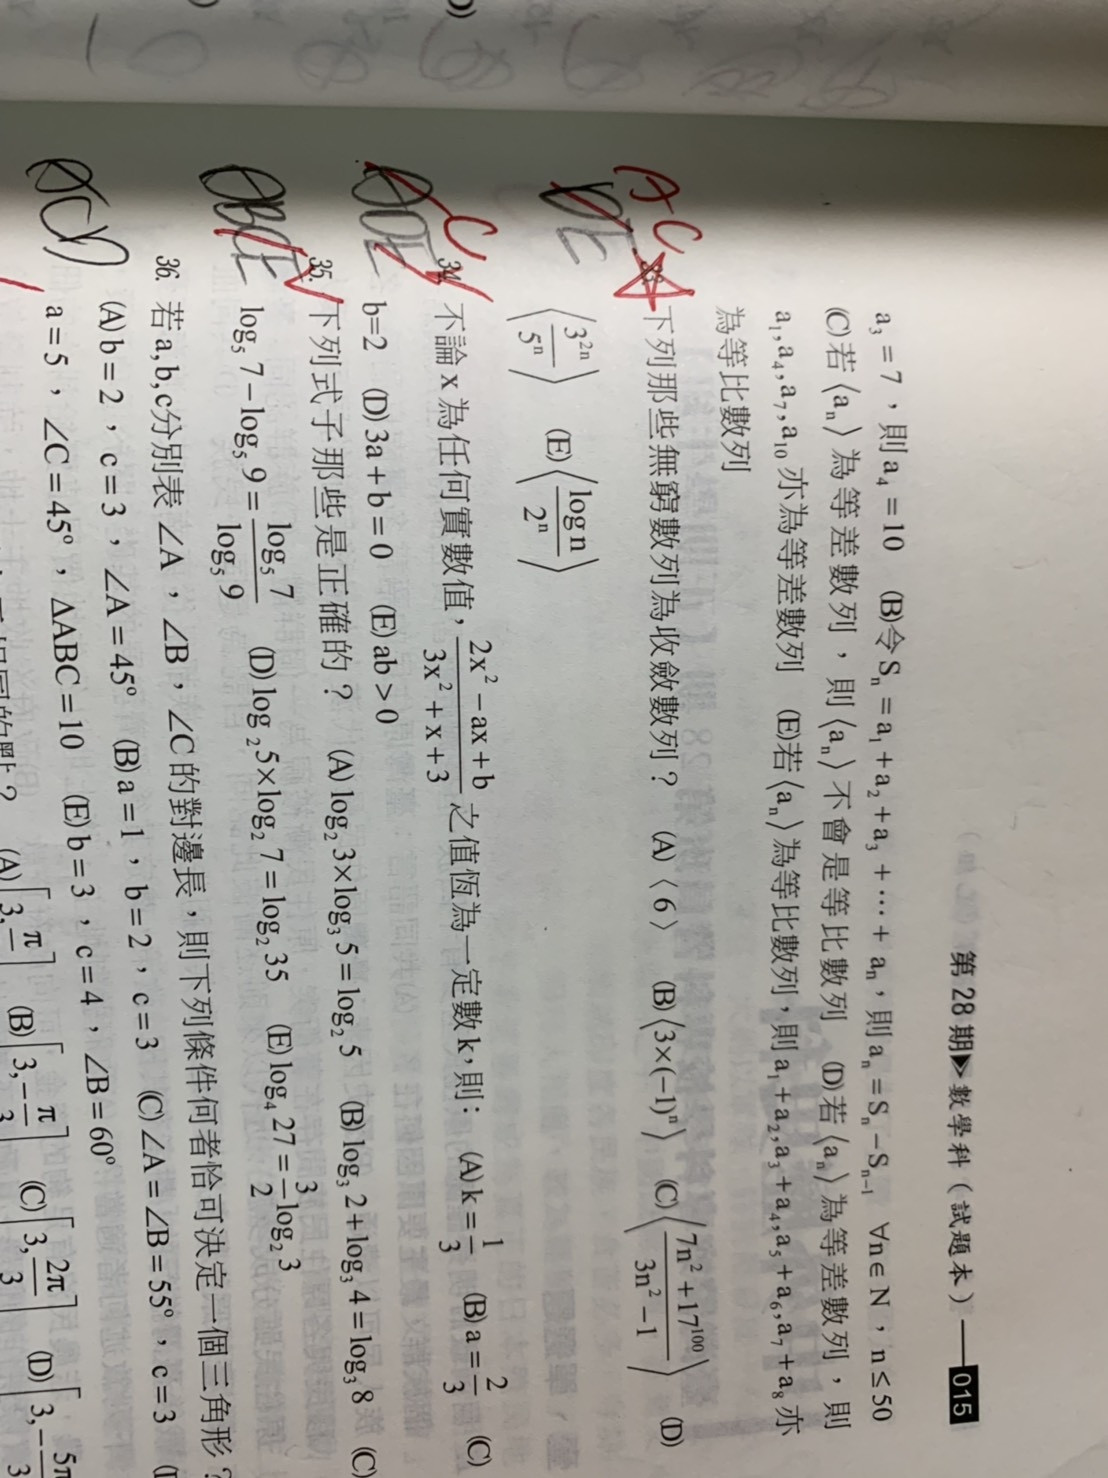 第 28 期▶數學科(試題本)——015
a₃=7,則a₄=10 (B)令Sₙ=a₁+a₂+a₃+⋯+aₙ,則aₙ=Sₙ-Sₙ₋₁ ∀n∈N,n≤50
(C)若⟨aₙ⟩為等差數列,則⟨aₙ⟩不會是等比數列 (D)若⟨aₙ⟩為等差數列,則
a₁,a₄,a₇,a₁₀亦為等差數列 (E)若⟨aₙ⟩為等比數列,則a₁+a₂,a₃+a₄,a₅+a₆,a₇+a₈亦
為等比數列
AC
DE
33. 下列那些無窮數列為收斂數列? (A)⟨6⟩ (B)⟨3×(-1)ⁿ⟩ (C)⟨(7n²+17¹⁰⁰)/(3n²-1)⟩ (D)
⟨3²ⁿ/5ⁿ⟩ (E)⟨log n/2ⁿ⟩
C
ADE
34. 不論x為任何實數值,(2x²-ax+b)/(3x²+x+3)之值恆為一定數k,則: (A)k=1/3 (B)a=2/3 (C)
b=2 (D)3a+b=0 (E)ab>0
ABCE
35. 下列式子那些是正確的? (A)log₂3×log₃5=log₂5 (B)log₃2+log₃4=log₃8 (C)
log₅7-log₅9=log₅7/log₅9 (D)log₂5×log₂7=log₂35 (E)log₄27=3/2 log₂3
ACD
36. 若a,b,c分別表∠A,∠B,∠C的對邊長,則下列條件何者恰可決定一個三角形?
(A)b=2,c=3,∠A=45° (B)a=1,b=2,c=3 (C)∠A=∠B=55°,c=3
a=5,∠C=45°,ΔABC=10 (E)b=3,c=4,∠B=60°
(A)[3,π (B)[3,-π/3] (C)[3,2π/3] (D)[3,-5π/3